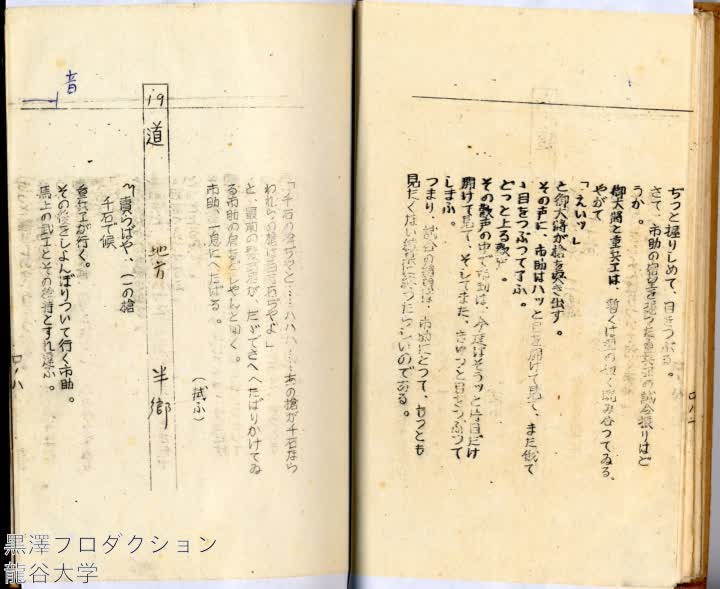 ぢっと握りしめて、目をつぶる。
さて、市助の宿望を担った重兵エの試合振りはど
うか。
御大将と重兵エは、暫くは型の如く睨み合ってゐる。
やがて
「えいッ」
と御大将が槍を突き出す。
その声に、市助はハッと目を開けて見て、また慌て
て目をつぶってしまふ。
どっと上る歓声。
その歓声の中で市助は、今度はそうッと片目だけ
開けて見て、そしてまた、きゅっと目をつぶって
しまふ。
つまり、試合の結果は、市助にとって、もっとも
見たくない結果に終ったらしいのである。
「千石の槍ぢゃと……ハハハ……あの槍が千石なら
われらの槍は百万石ぢゃよ」
と、最前の
る市助の
市助、一息にへたばる。
(拭ふ)
19 道 地方 半郷
〽責めらばや、この槍
千石で候
重兵エが行く。
その後をしょんぼりついて行く市助。
馬上の武士とその後待とすれ違ふ。
音
ロノハ
黒澤プロダクション
龍谷大学